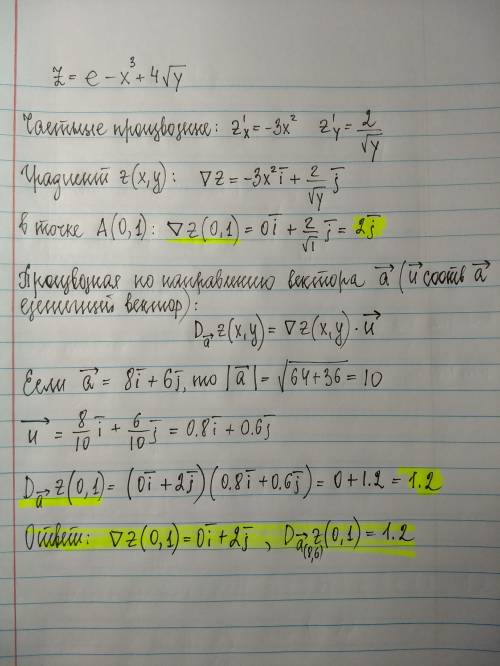 z = e - x³ + 4√y
Частные производные: z'x = -3x² z'y = 2/√y
Градиент z(x,y): ∇z = -3x²i̅ + 2/√y j̅
в точке A(0,1): ∇z(0,1) = 0i̅ + 2/√1 j̅ = 2j̅
Производная по направлению вектора a⃗ (u⃗ соотв a⃗
единичный вектор):
Da⃗ z(x,y) = ∇z(x,y) · u⃗
Если a⃗ = 8i̅ + 6j̅, то |a⃗| = √64+36 = 10
u⃗ = 8/10 i̅ + 6/10 j̅ = 0.8i̅ + 0.6j̅
Da⃗ z(0,1) = (0i̅ + 2j̅)(0.8i̅ + 0.6j̅) = 0 + 1.2 = 1.2
Ответ: ∇z(0,1) = 0i̅ + 2j̅, Da⃗(8,6) z(0,1) = 1.2